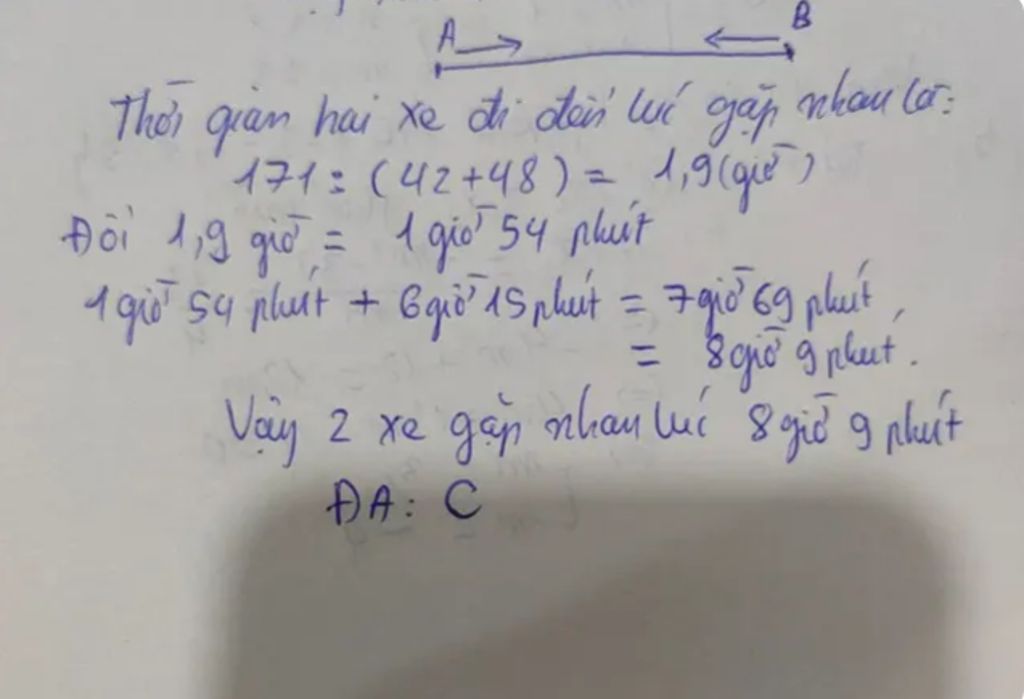 A B
Thời gian hai xe đi đến lúc gặp nhau là:
171 : (42+48) = 1,9 (giờ)
Đổi 1,9 giờ = 1 giờ 54 phút
1 giờ 54 phút + 6 giờ 15 phút = 7 giờ 69 phút
= 8 giờ 9 phút.
Vậy 2 xe gặp nhau lúc 8 giờ 9 phút
ĐA: C